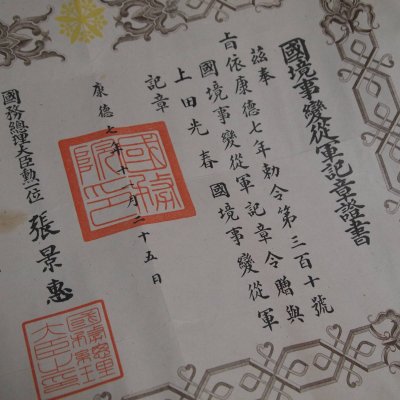 國境事變從軍記章證書
茲奉
旨依康德七年勅令第三百十號
國境事變從軍記章令贈與
上田光春國境事變從軍
記章
康德七年十一月二十五日
國務院印
國務總理大臣勳一位 張景惠
國務總理大臣之印